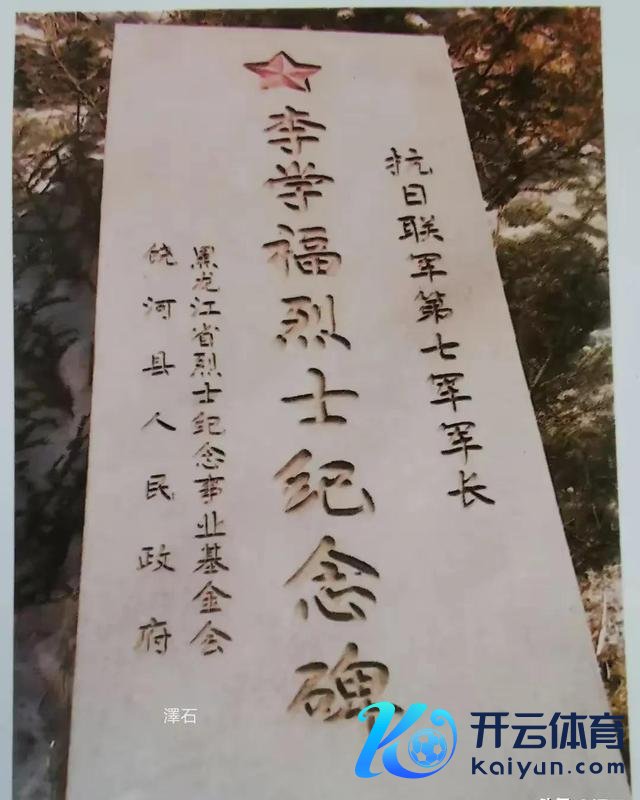 抗日联军第七军军长
李学福烈士纪念碑
黑龙江省烈士纪念事业基金会
饶河县人民政府
澤石
开云体育
kaiyun.com